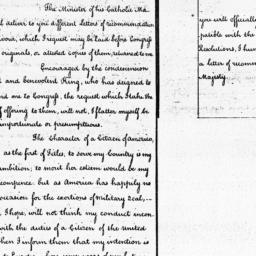 The Minister of his Catholic Ma
d deliver to you different Letters of recommendation
avour, which I request may be laid before Congress
originals, or attested copies of them, returned to me
Encouraged by the condescension
t and benevolent King, who has deigned to
end me to Congress, the request which I take the
of offering to them, will not, I flatter myself be
importunate or presumptuous.
The Character of a Citizen of America,
as the first of Titles, to serve my Country is my
ambition; to merit her esteem would be my
recompence. but as America has happily no
occasion for the exertions of Military Zeal,
I hope, will not think my conduct incon
with the duties of a Citizen of the United
when I inform them that my intention is
you will officially
patible with the
Resolutions, I hum
a letter of recomm
Majesty.